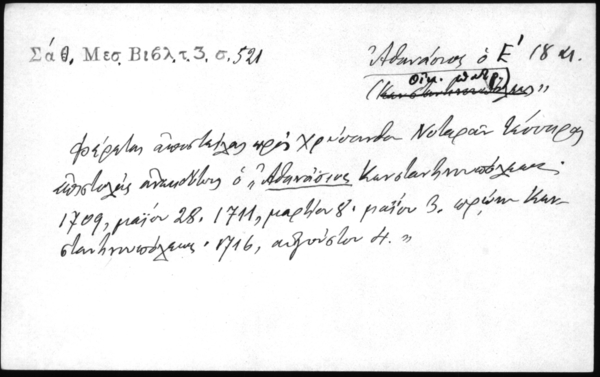 Σάθ. Μεσ. Βιβλ. τ. 3. σ. 521
Ἀθανάσιος ὁ Ε' 18 αι.
Οἰκ. πατρ.
(Κωνσταντινουπόλεως) „
Φέρεται ἀποστείλας πρὸς Χρύσανθον Νοταρᾶν τέσσαρας
ἐπιστολὰς ἀνεκδότους ὁ „Ἀθανάσιος Κωνσταντινουπόλεως·
1709, μαΐου 28. 1711, μαρτίου 8. μαΐου 3. πρώην Κων-
σταντινουπόλεως· 1716, αὐγούστου 4. „